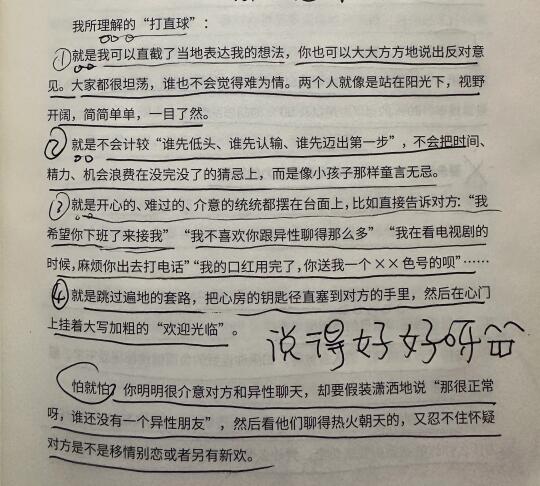 我所理解的“打直球”：
①就是我可以直截了当地表达我的想法，你也可以大大方方地说出反对意
见。大家都很坦荡，谁也不会觉得难为情。两个人就像是站在阳光下，视野
开阔，简简单单，一目了然。
②就是不会计较“谁先低头、谁先认输、谁先迈出第一步”，不会把时间、
精力、机会浪费在没完没了的猜忌上，而是像小孩子那样童言无忌。
③就是开心的、难过的、介意的统统都摆在台面上，比如直接告诉对方：“我
希望你下班了来接我”“我不喜欢你跟异性聊得那么多”“我在看电视剧的
时候，麻烦你出去打电话”“我的口红用完了，你送我一个××色号的呗”……
④就是跳过遍地的套路，把心房的钥匙径直塞到对方的手里，然后在心门
上挂着大写加粗的“欢迎光临”。
说得好好呀
怕就怕，你明明很介意对方和异性聊天，却要假装潇洒地说“那很正常
呀，谁还没有一个异性朋友”，然后看他们聊得热火朝天的，又忍不住怀疑
对方是不是移情别恋或者另有新欢。